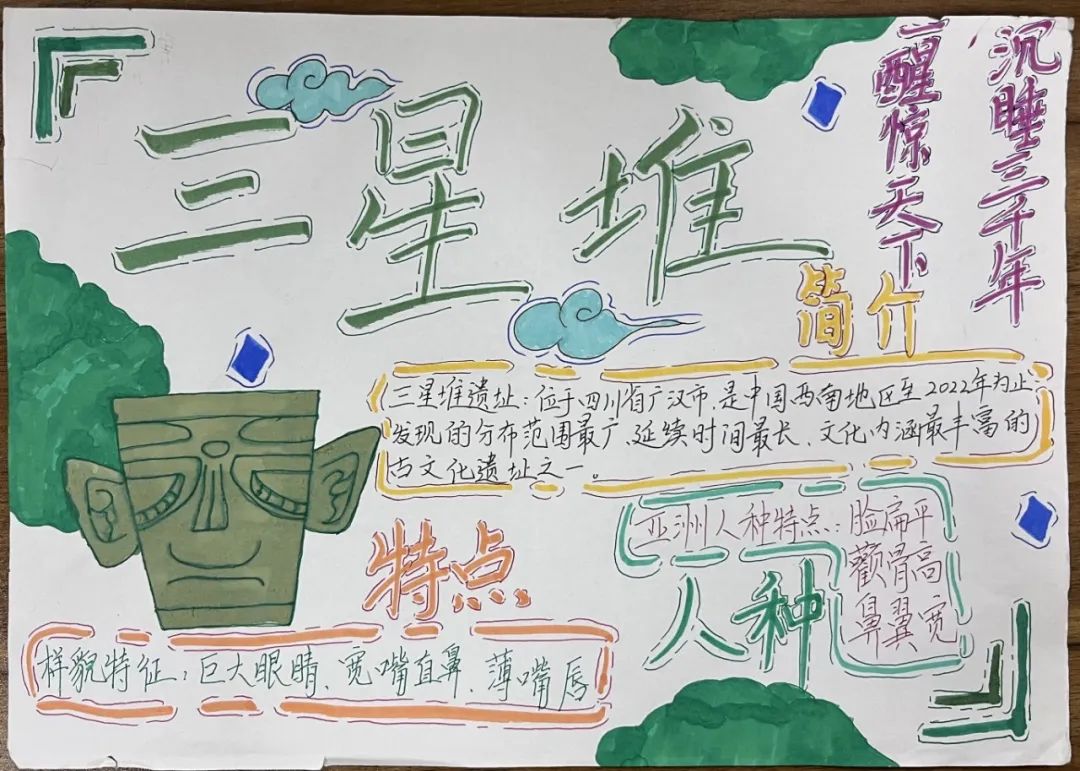 三星堆
沉睡三千年
一醒惊天下
简介
三星堆遗址：位于四川省广汉市，是中国西南地区至2022年为止
发现的分布范围最广、延续时间最长、文化内涵最丰富的
古文化遗址之一。
特点
样貌特征：巨大眼睛、宽嘴直鼻、薄嘴唇
人种
亚洲人种特点：脸扁平
颧骨高
鼻翼宽